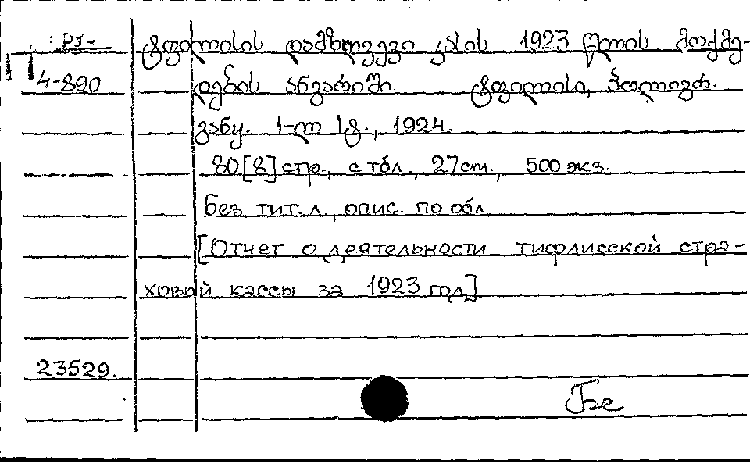 РГ- ტფილისის დამზღვევი კასის 1923 წლის მოქმე-
4-890 დების ანგარიში ტფილისი, პოლიგრ.
განყ. 1-ლი სტ., 1924.
80 [8] стр., с тбл., 27 cm., 500 экз.
Без тит. л., опис. по обл.
[Отчет о деятельности тифлисской стра-
ховой кассы за 1923 год]
23529.